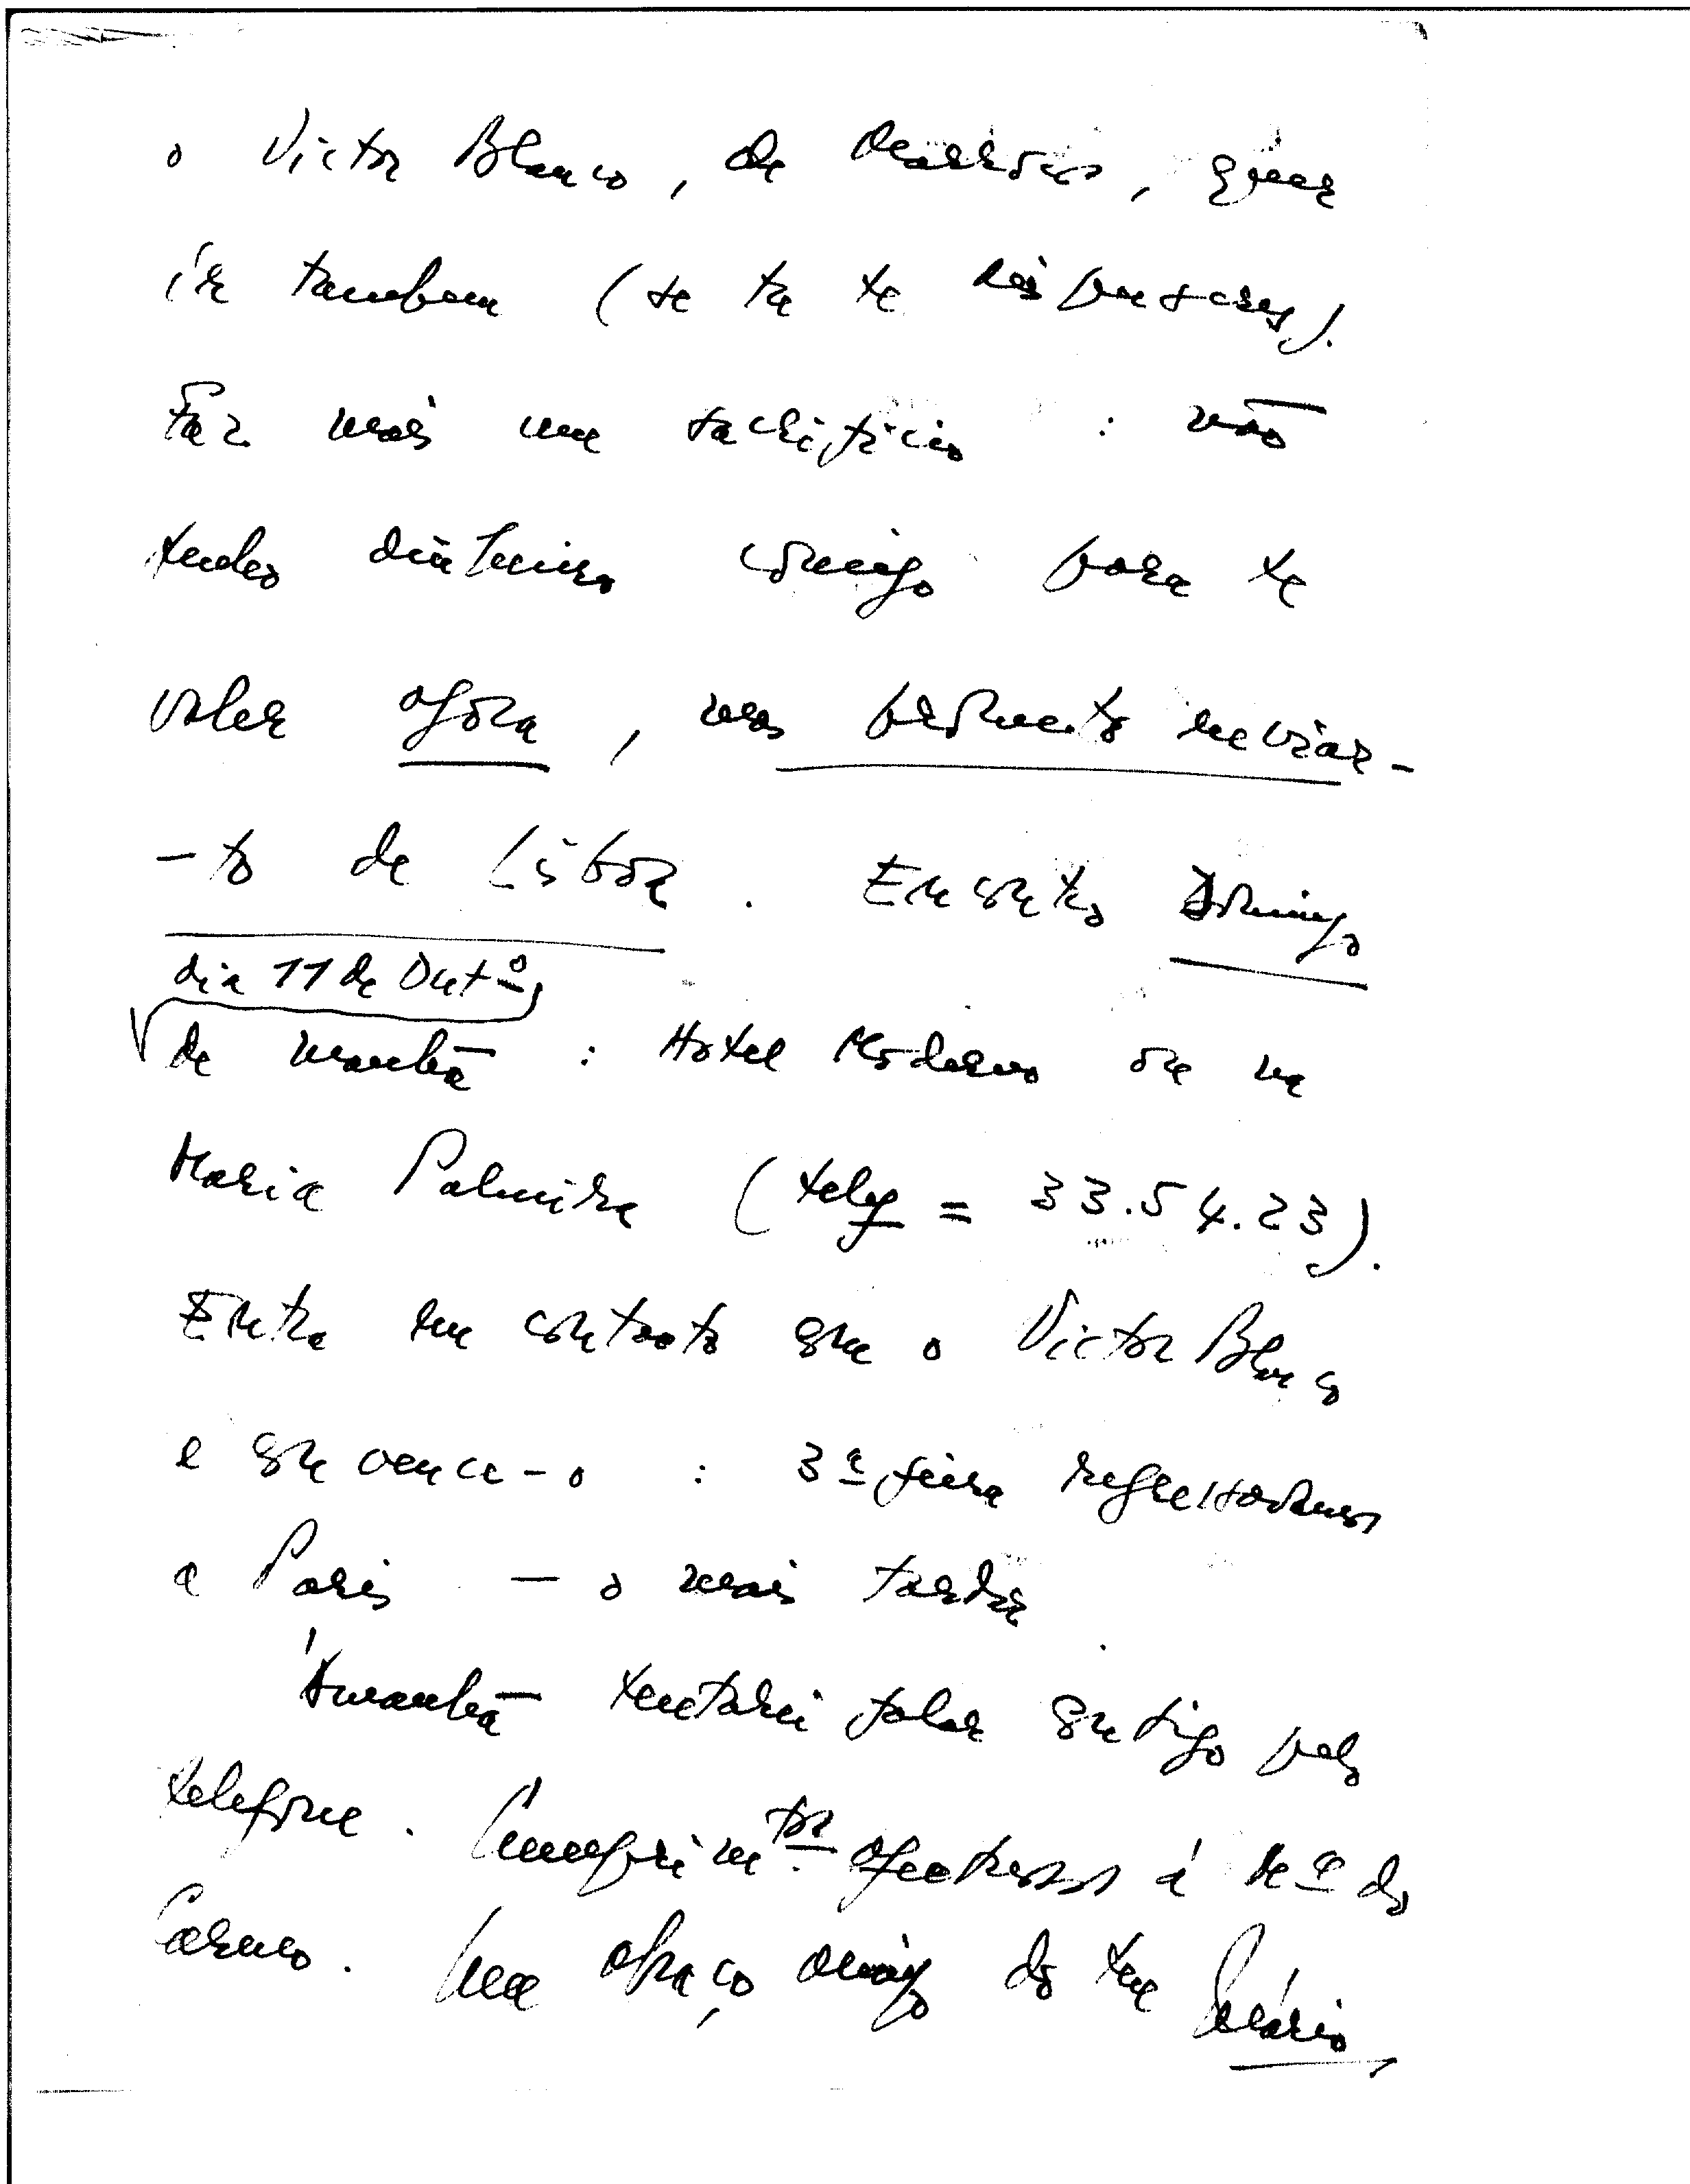 o Victor Blanco, de Marrocos, quer
ir tambem (se tu te dispuseres).
Faz mais um sacrifício : não
tenho dinheiro comigo para te
valer agora, mas prometo enviar-
-to de Lisboa. Encontro Domingo
dia 11 de Out.º,
de manhã : Hotel Moderno ou na
Maria Palmira (telef = 33.54.23).
Entra em contacto com o Victor Blanco
e convence-o : 3ª feira regressamos
a Paris — o mais tardar.
Amanhã tentarei falar contigo pelo
telefone. Cumprim.tos afectuosos á Mª do
Carmo. Um abraço amigo do teu Mário